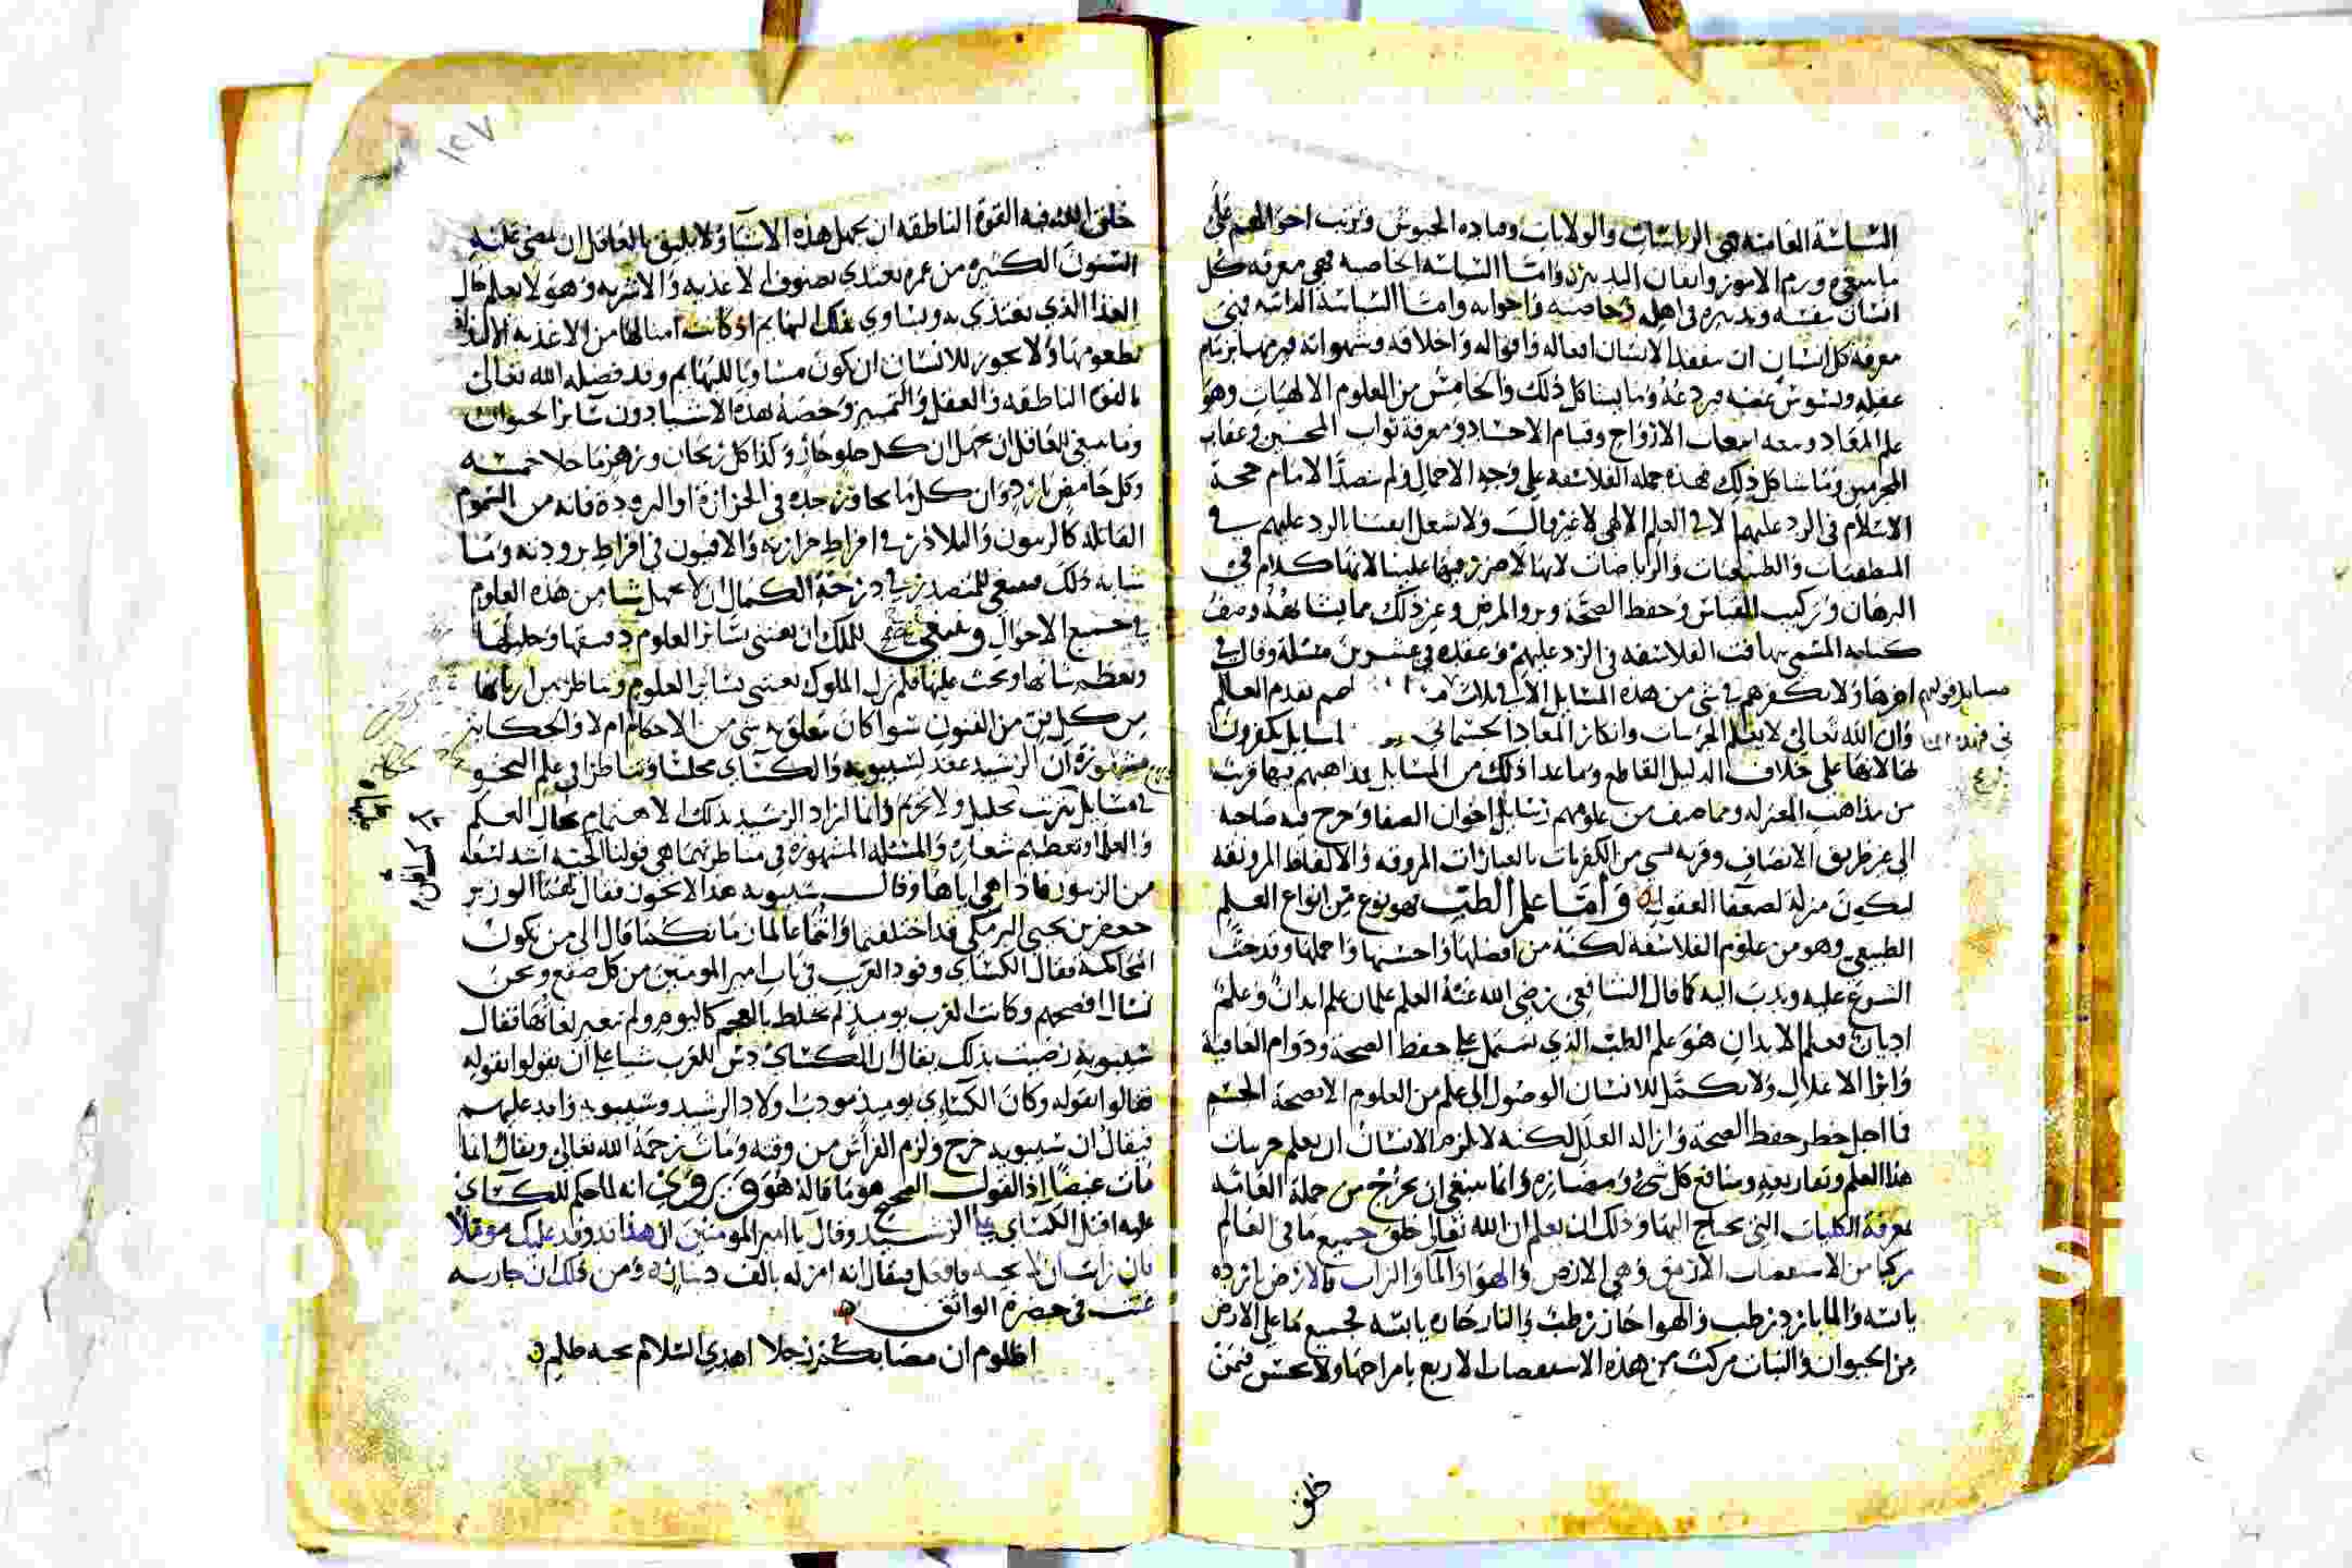 السياسة العامية هي الرياسات والولايات وماده الجيوش وترتيب احوالهم على
ما ينبغي ورم الامور واتقان التدبير واما السياسه الخاصيه فهي معرفه كل
انسان نفسه وتدبيره في اهله وخاصته واخوانه واما السياسة الذاتيه فهي
معرفة كل انسان ان يتفقد الانسان افعاله واقواله واخلاقه وشهواته فيزمها بزمام
عقله وغضبه فيردعه وما يشاكل ذلك والخامس من العلوم الالهيات وهو
علم المعاد ومعه انبعاث الارواح وقيام الاجساد ومعرفة ثواب المحسنين وعقاب
المجرمين وما شاكل ذلك فهذه جمله الفلاسفه على وجه الاجمال ولم يتصد الامام حجة
الاسلام في الرد عليهم الا في العلم الالهي لا غير قال ولا نشغل انفسنا بالرد عليهم في
المنطقيات والطبيعيات والرياضات لانها لا ضرر فيها علينا لانها كلام في
البرهان وتركيب القياس وحفظ الصحة وبرو المرض وغير ذلك مما يشابهه وصنف
كتابه المسمى تهافت الفلاسفه في الرد عليهم وعقده في عشرين مسئلة وقال في
اخرها ولا نكفرهم في شي من هذه المسايل الا في ثلاث بقدم العالم
وان الله تعالى لا يعلم الجزييات وانكار المعاد الجسماني المسايل يكفرون
بها لانها على خلاف الدليل القاطع وما عدا ذلك من المسايل مذاهبهم فيها قريبة
من مذاهب المعتزله ومما صنف من علومهم رسايل اخوان الصفا وخرج فيه صاحبه
الى غير طريق الانصاف وقربه لشي من الكفريات بالعبارات المروقه والالفاظ المرونقه
ليكون مزلة لضعفا العقول واما علم الطب فهو نوع من انواع العلم
الطبيعي وهو من علوم الفلاسفه لكنه من افضلها واحسنها واجملها وقد حث
الشرع عليه وندب اليه كما قال الشافعي رضي الله عنه العلم علمان علم ابدان وعلم
اديان فعلم الابدان هو علم الطب الذي يشتمل على حفظ الصحة ودوام العافية
وابرا الاعلال ولا يكمل للانسان الوصول الى علم من العلوم الا بصحة الجسم
فما اجل خطر حفظ الصحة وازالة العلل لكنه لا يلزم الانسان ان يعلم جزييات
هذا العلم وتفاريعه ومنافع كل شي ومضاره وانما ينبغي ان يخرج من جملة العاميه
بمعرفة الكليات التي يحتاج اليها وذلك ان يعلم ان الله تعالى خلق جميع ما في العالم
مركبا من الاستقصات الاربع وهي الارض والهوا والما والتراب فالارض بارده
يابسه والما بارد رطب والهوا حار رطب والنار حاره يابسه فجميع ما على الارض
من الحيوان والنبات مركب من هذه الاستقصات الاربع بامزاجها ولا يحسن فيمن
خلق
١٢٧
خلق الله فيه القوة الناطقه ان يجهل هذه الاشيا ولا يليق بالعاقل ان تمضي عليه
السنون الكثيره من عمره يغتذي بصنوف الاغذيه والاشربه وهو لا يعلم حال
الغذا الذي يغتذي به ويساوي بذلك البهايم اذ كانت امثالها من الاغذيه
بطعومها ولا يجوز للانسان ان يكون مساويا للبهايم وقد فضله الله تعالى
بالقوة الناطقه والعقل والتمييز وخصه بهذه الاشيا دون سائر الحيوان
وما ينبغي للعاقل ان يجهل ان كل حلو حار وكذا كل ريحان وزهر ما خلا خمسه
وكل حامض بارد وان كل ما يجاوز حده في الحرارة او البرودة فانه من السموم
القاتله كالفربيون والبلاذر في افراط حرارته والافيون في افراط برودته وما
شابه ذلك فينبغي للمتصدر في درجة الكمال ان لا يجهل شيا من هذه العلوم
في جميع الاحوال وينبغي للملك ان يعتني بسائر العلوم دقيقها وجليلها
ويعظم شانها ويحث عليها فلم تزل الملوك تعتني بسائر العلوم ويناظر بين اربابها
من كل فن من الفنون سوا كان يتعلق به شي من الاحكام ام لا والحكايه
مشهورة ان الرشيد عقد لسيبويه والكسائي مجلسا وتناظرا في علم النحو
في مسايل بترتب تحليل ولا تحريم وانما اراد الرشيد بذلك الاهتمام بحال العلم
والعلما وتعظيم شعاره والمسئله المشهورة في مناظرتهما هي قولنا الحية اشد لسعة
من الزنبور فاذا هي اياها وقال سيبويه هذا لا يجوز فقال لهما الوزير
جعفر بن يحيى البرمكي قد اختلفتما وانتما عالمان فما بحكمنا قال الى من تكون
المحاكمة فقال الكسائي وفود العرب في باب امير المومنين من كل صقع ونحن
نسال افصحهم وكانت العرب يوميذ لم تختلط بالعجم كاليوم ولم تتغير لغاتها فقال
سيبويه رضيت بذلك يقال ان الكسائي دس للعرب شيا على ان يقولوا بقوله
فقالوا بقوله وكان الكسائي يوميذ مودب اولاد الرشيد وسيبويه وافد عليهم
فيقال ان سيبويه خرج ولزم الفراش من وقته ومات رحمة الله تعالى ويقال انما
مات غيظا اذ القول الصحيح هو ما قاله هو وروي انه لما حكم للكسائي
عليه اقبل الكسائي على الرشيد وقال يا امير المومنين ان هذا قد وفد عليك موملا
فان رايت ان لا تخيبه فافعل فيقال انه امر له بالف دينار ومن ذلك ان جاريه
غنت في حضرة الواثق
اظلوم ان مصابكم رجلا اهدى السلام تحية ظلم